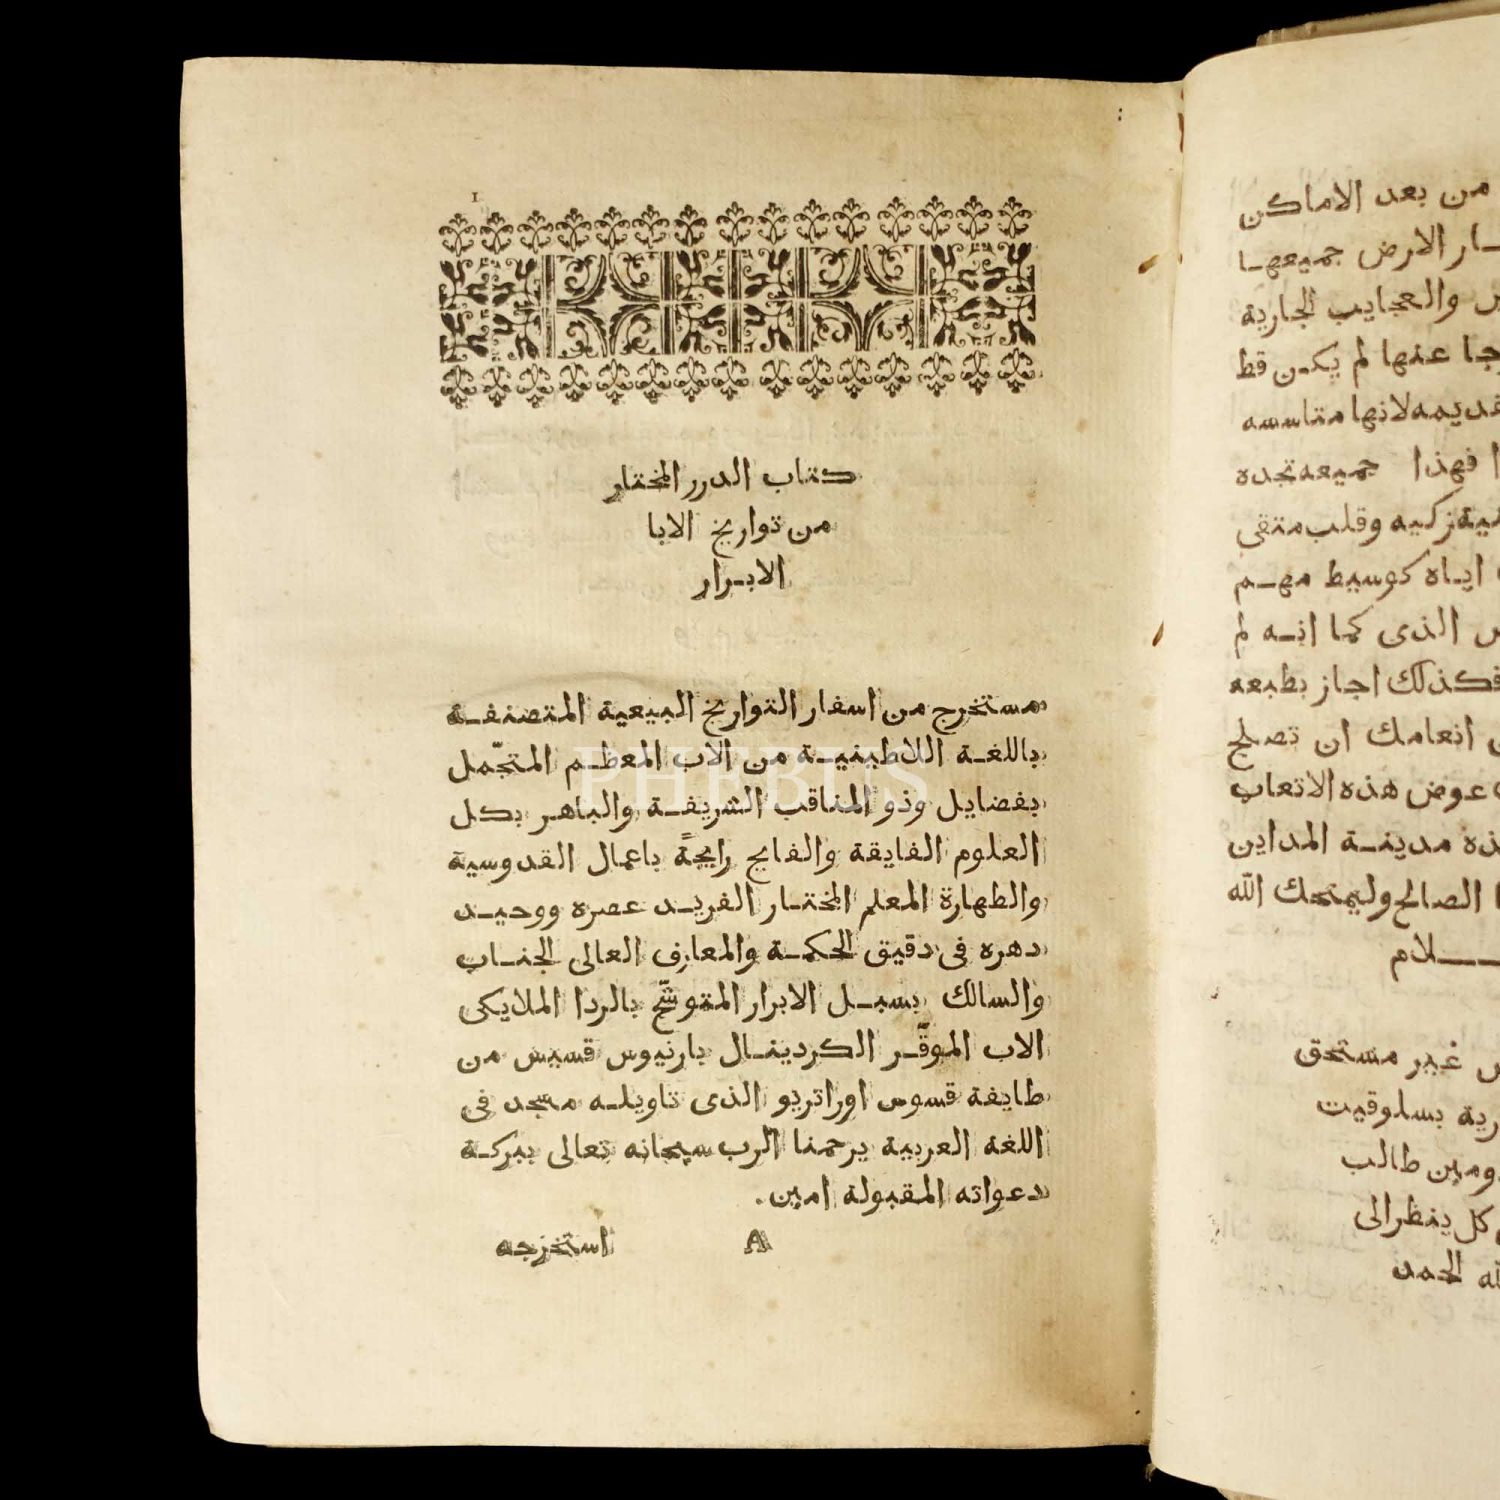 1
كتاب الدرر المختار
من تواريخ الابا
الابـرار
مستخرج من اسفار التواريخ البيعية المتصنفـة
باللغـة اللاطينيـة من الاب المعظـم المتجّمل
بفضايل وذو المناقب الشريفـة والباهر بكل
العلوم الفايقة والفايح رايحةً باعمال القدوسية
والطهارة المعلم المختـار الفريـد عصره ووحيـد
دهره فى دقيق الحكمـة والمعارف العالى الجنـاب
والسالك بسبـل الابرار المتوشّح بالردا الملايكى
الاب الموقّـر الكردينـال بارنيوس قسيس من
طايفة قسوس اوراتريو الذى تاويلـه مسجد فى
اللغة العربية يرحمنا الرب سبحانه تعالى ببركـة
دعواته المقبولة امين.
A استخرجه
PHEBUS
من بعد الاماكن
ـار الارض جميعهـا
والعجايب الجارية
عنها لم يكـن قط
لانها متاسسه
فهذا جميعه تجده
زكيه وقلب متقى
ايـاه كوسيط مهـم
الذى كما انـه لم
فكذلك اجاز بطبعه
انعامك ان تصلح
عوض هذه الاتعاب
مدينـة المداين
الصالح وليمنحك الله
ـــلام
غير مستحق
بسلوقيت
ومين طالب
كل ينظر الى
الحمد